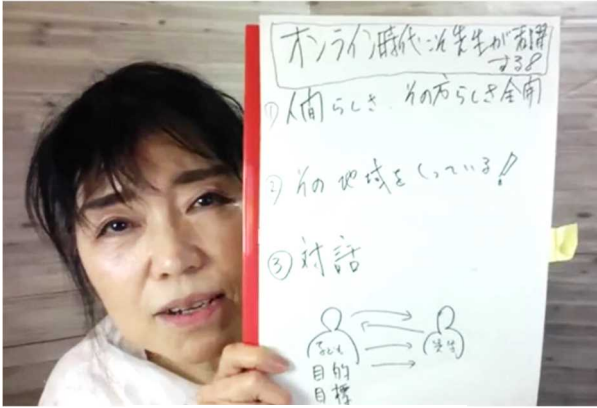 オンライン時代こそ先生が活躍
する8
① 人間らしさ、その方らしさ全開
② その地域をしっている!
③ 対話
子ども 先生
目的
目標